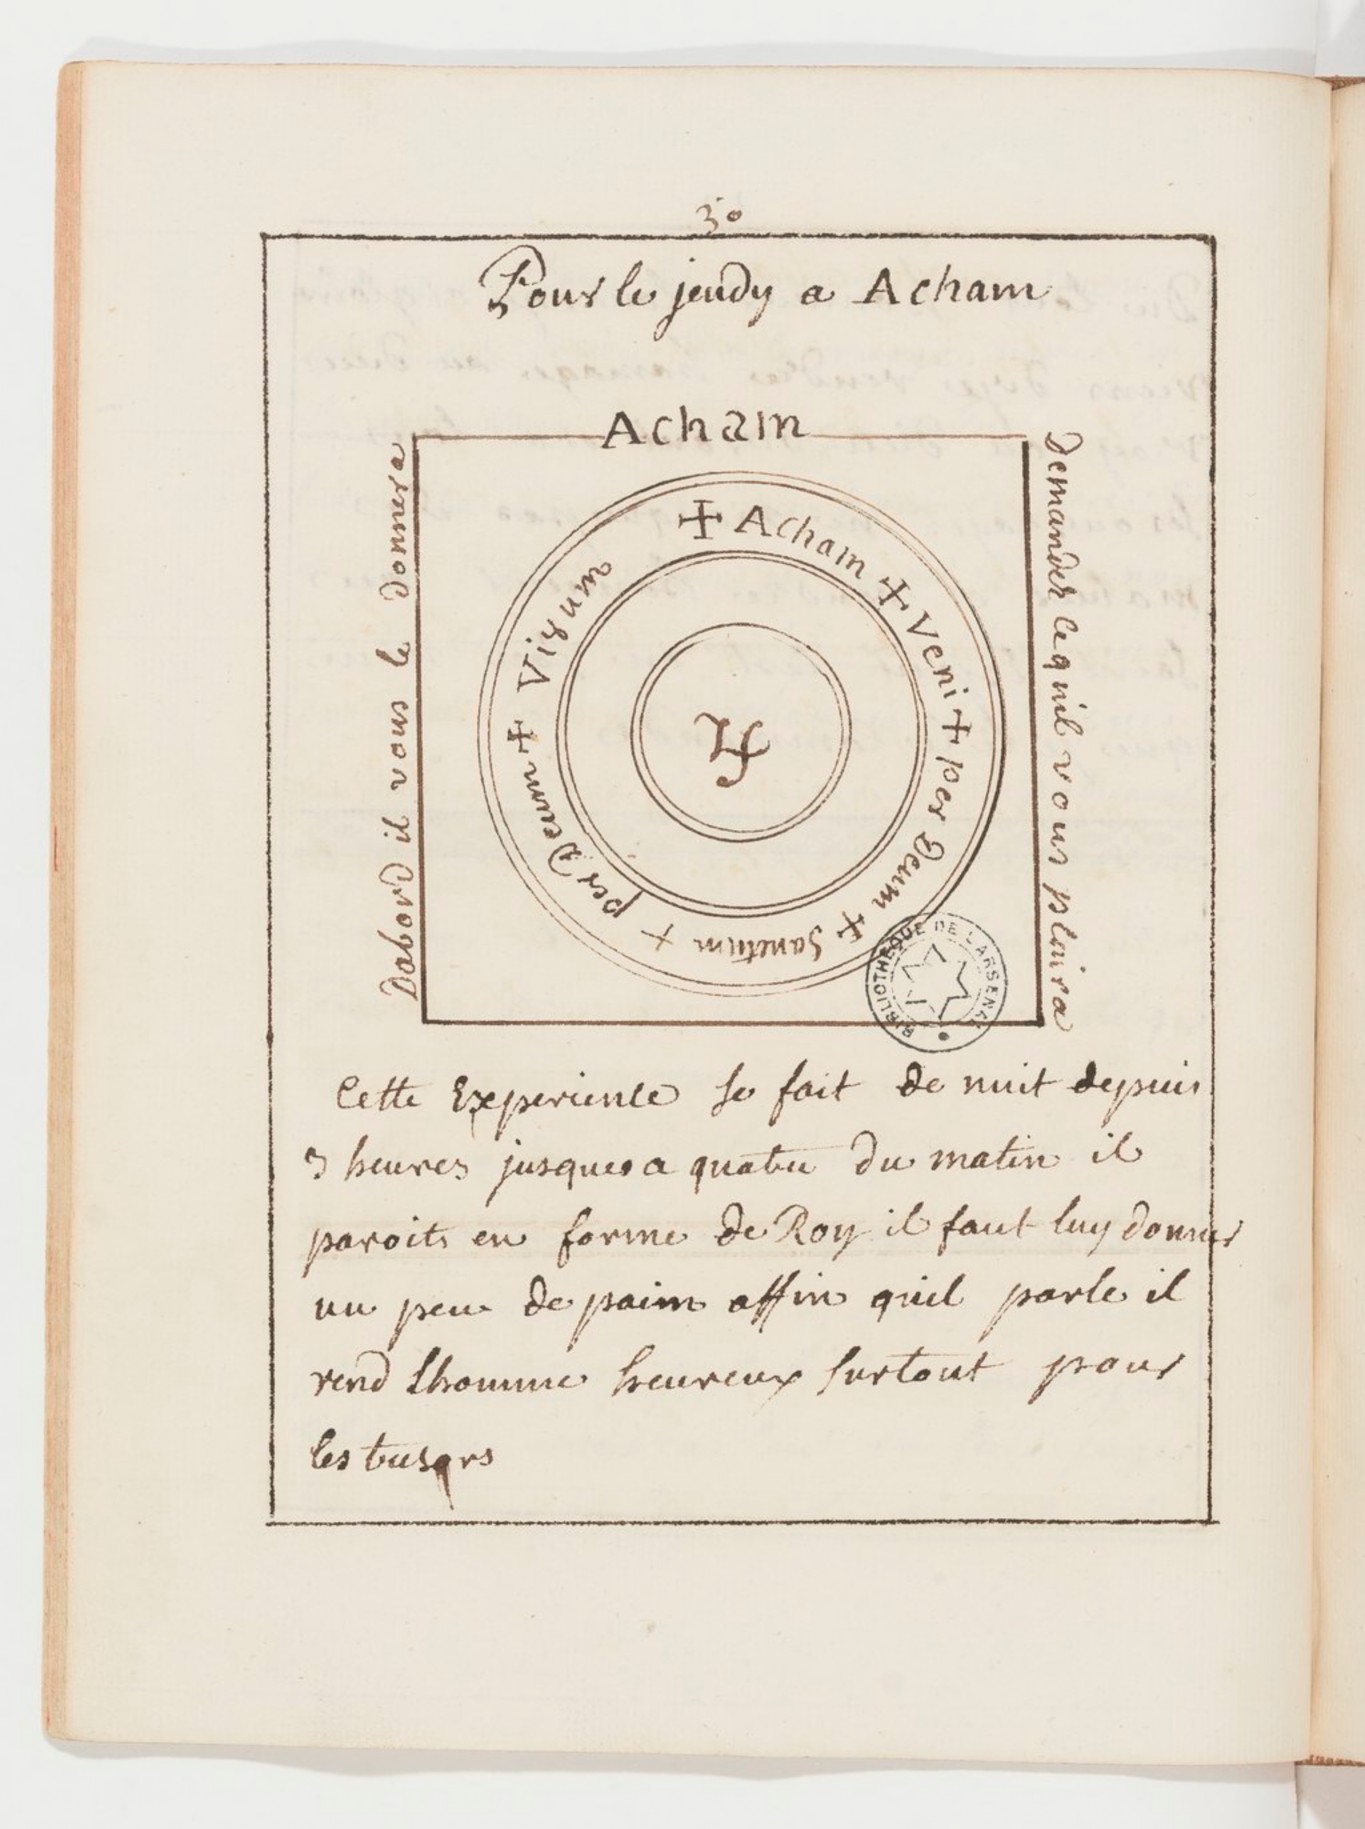 30
Pour le jeudy a Acham
Acham
Dabord il vous le donnera
Demander ce quil vous plaira
✠ Acham ✠ Veni ✠ per Deum ✠ Sanctum + per Deum ✠ Vivum
♃
BIBLIOTHEQUE DE L'ARSENAL
Cette Experience se fait de nuit depuis
3 heures jusques a quatre du matin il
paroits en forme de Roy il faut luy donner
un peu de paim affin quil parle il
rend Lhomme heureux surtout pour
les tresors